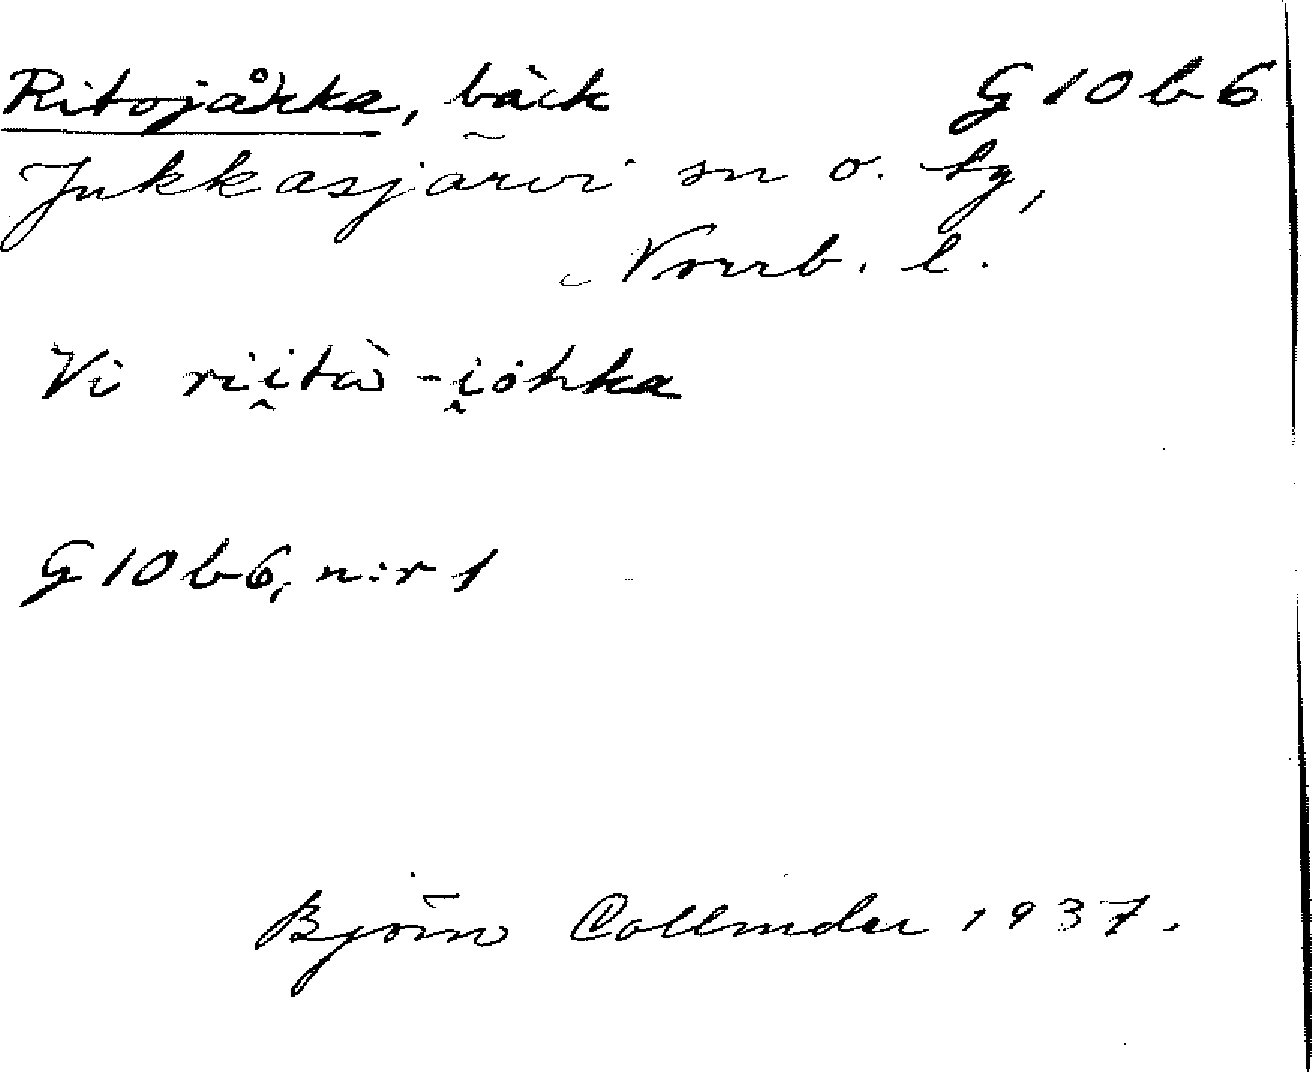 Ritojåkka, bäck G10b6
Jukkasjärvi sn o. tg,
Norrb. l.
Vi rii̯tȧ̀-i̯ohka
G10b6, n:r 1
Björn Collinder 1937.